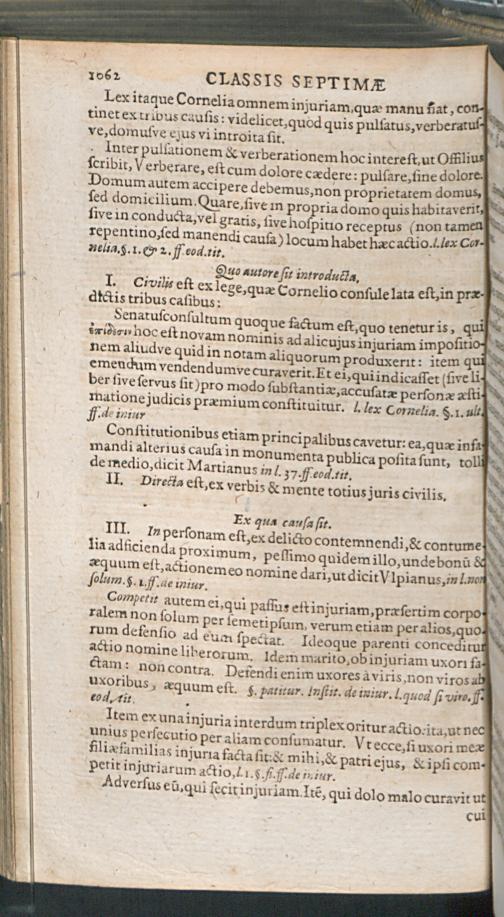 1062 CLASSIS SEPTIMÆ
Lex itaque Cornelia omnem injuriam,quæ manu fiat, con-
tinet ex tribus causis: videlicet,quòd quis pulsatus,verberatus-
ve,domusve ejus vi introita sit.
Inter pulsationem & verberationem hoc interest,ut Offilius
scribit, Verberare, est cum dolore cædere: pulsare,sine dolore.
Domum autem accipere debemus,non proprietatem domus,
sed domicilium. Quare,sive in propria domo quis habitaverit,
sive in conducta,vel gratis, sive hospitio receptus (non tamen
repentino,sed manendi causa) locum habet hæc actio.l.lex Cor-
nelia.§.1.& 2.ff.eod.tit.
Quo autore sit introducta,
I. Civilis est ex lege,quæ Cornelio consule lata est,in præ-
dictis tribus casibus:
Senatusconsultum quoque factum est,quo tenetur is, qui
hoc est novam nominis ad alicujus injuriam impositio-
nem aliudve quid in notam aliquorum produxerit: item qui
emendum vendendumve curaverit. Et ei,qui indicasset (sive li-
ber sive servus sit) pro modo substantiæ,accusatæ personæ æsti-
matione judicis præmium constituitur. l. lex Cornelia. §.1. ult.
ff.de iniur
Constitutionibus etiam principalibus cavetur: ea,quæ infa-
mandi alterius causa in monumenta publica posita sunt, tolli
de medio,dicit Martianus in l.37.ff.eod.tit.
II. Directa est,ex verbis & mente totius juris civilis.
Ex qua causa sit.
III. In personam est,ex delicto contemnendi,& contume-
lia adficienda proximum, pessimo quidem illo,unde bonũ &
æquum est,actionem eo nomine dari,ut dicit Vlpianus,in l.non
solum.§.1.ff.de iniur.
Competit autem ei,qui passus est injuriam,præsertim corpo-
ralem non solum per semetipsum, verum etiam per alios,quo-
rum defensio ad eum spectat. Ideoque parenti conceditur
actio nomine liberorum. Idem marito,ob injuriam uxori fa-
ctam: non contra. Defendi enim uxores à viris,non viros ab
uxoribus, æquum est. §. patitur. Instit. de iniur. l.quod si viro.ff.
eod.tit.
Item ex una injuria interdum triplex oritur actio:ita,ut nec
unius persecutio per aliam consumatur. Vt ecce,si uxori meæ
filiæfamilias injuria facta sit:& mihi,& patri ejus, & ipsi com-
petit injuriarum actio,l.1.§.fi.ff.de iniur.
Adversus eũ,qui fecit injuriam.Itẽ, qui dolo malo curavit ut
cui